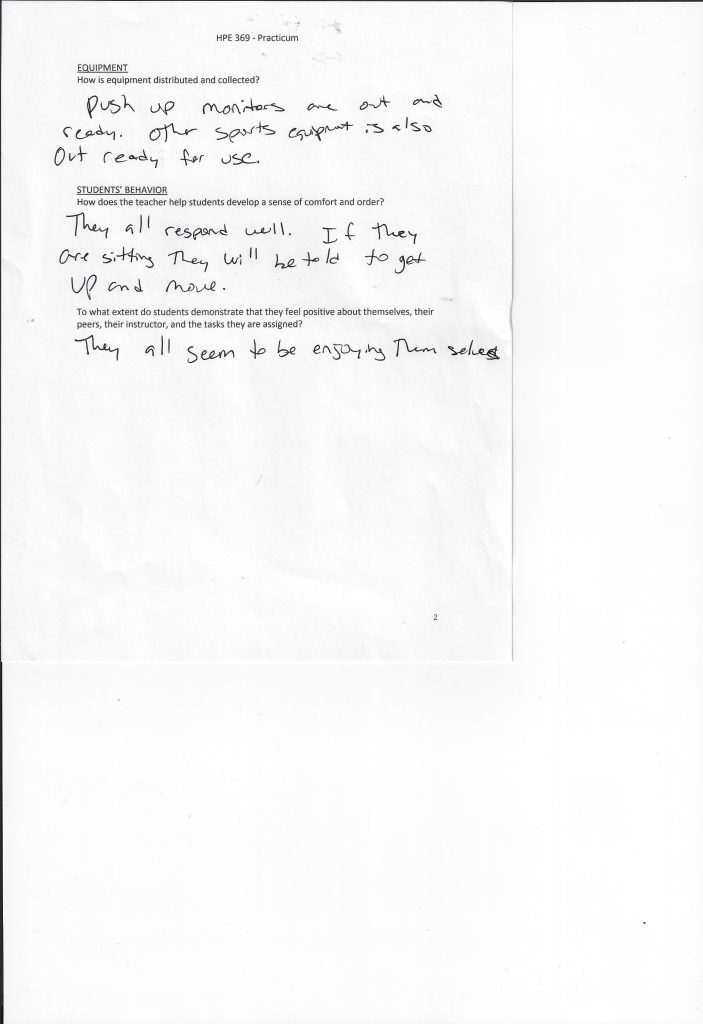 HPE 369 - Practicum
EQUIPMENT
How is equipment distributed and collected?
Push up monitors are out and
ready. Other sports equipment is also
Out ready for use.
STUDENTS' BEHAVIOR
How does the teacher help students develop a sense of comfort and order?
They all respond well. If they
are sitting They will be told to get
UP and move.
To what extent do students demonstrate that they feel positive about themselves, their
peers, their instructor, and the tasks they are assigned?
They all seem to be enjoying Them selves
2